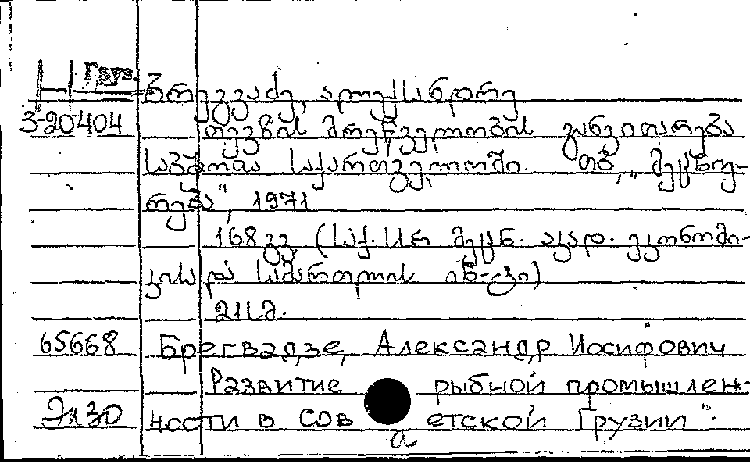 Груз.
ბრეგვაძე, ალექსანდრე
3-20404 თევზის მრეწველობის განვითარება
საბჭოთა საქართველოში. თბ., „მეცნიე-
რება", 1971
168 გვ. (საქ. სსრ მეცნ. აკად. ეკონომი-
კისა და სამართლის ინ-ტი)
65668 Брегвадзе, Александр Иосифович
Развитие рыбной промышлен-
Эл30 ности в Сов етской Грузии".
а